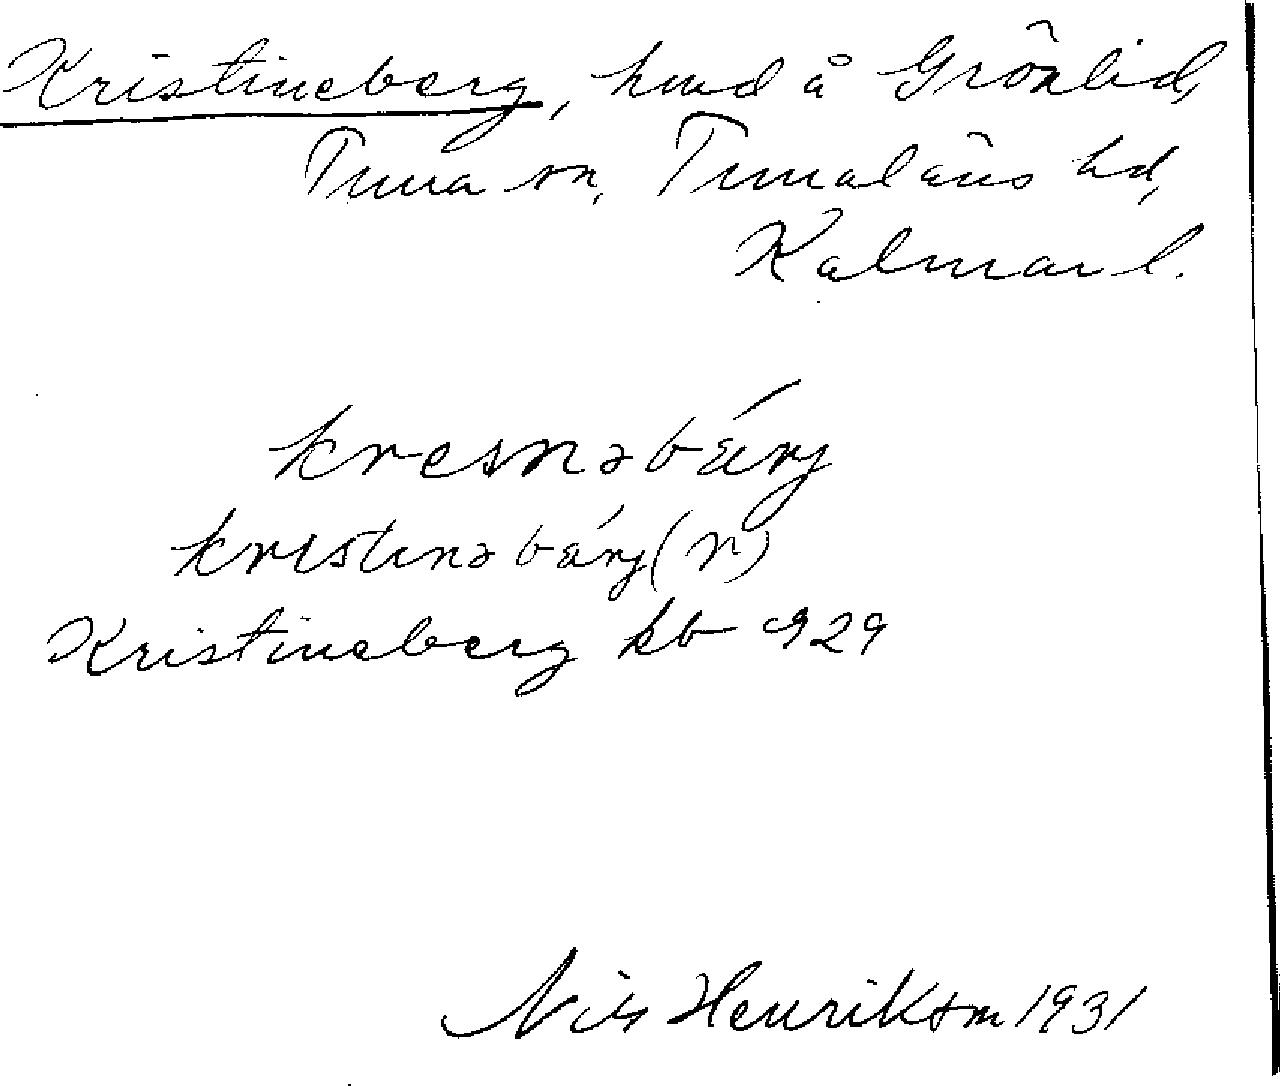 Kristineberg, hmd å Grönlid,
Tuna sn, Tunaläns hd,
Kalmar l.
kresnəbǽrj
kristinəbǽrj (r)
Kristineberg kb 929
Nils Henrikson 1931